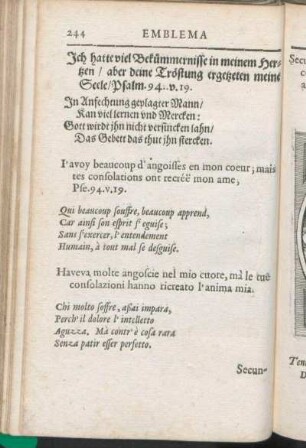 244 EMBLEMA
Ich hatte viel Bekümmernisse in meinem Her-
tzen / aber deine Tröstung ergetzeten meine
Seele / Psalm. 94. v. 19.
In Anfechtung geplagter Mann /
Kan viel lernen vnd Mercken:
Gott wirdt jhn nicht versincken lahn /
Das Gebett das thut jhn stercken.
I'avoy beaucoup d'angoisses en mon coeur; mais
tes consolations ont recréé mon ame,
Pse. 94. v. 19.
Qui beaucoup souffre, beaucoup apprend,
Car ainsi son esprit s'eguise;
Sans s'exercer, l'entendement
Humain, à tout mal se desguise.
Haveva molte angoscie nel mio cuore, mà le tuè
consolazioni hanno ricreato l'anima mia.
Chi molto soffre, assai impara,
Perch' il dolore l'intelletto
Aguzza. Mà contr' è cosa rara
Senza patir esser perfetto.
Secun-